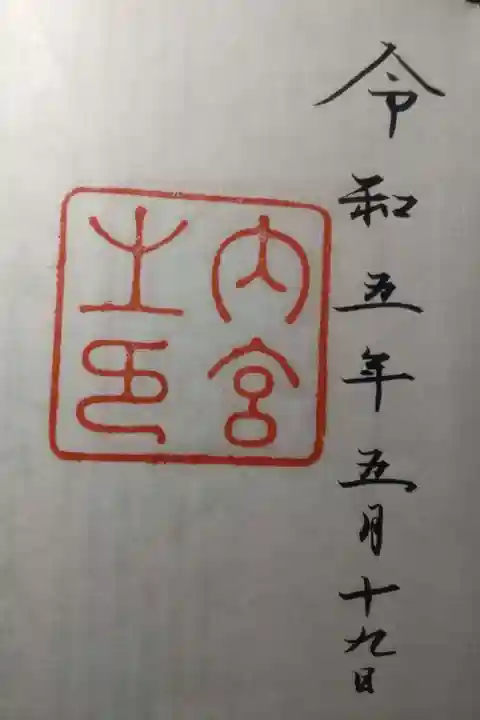 令和五年五月十九日
内宮
之印